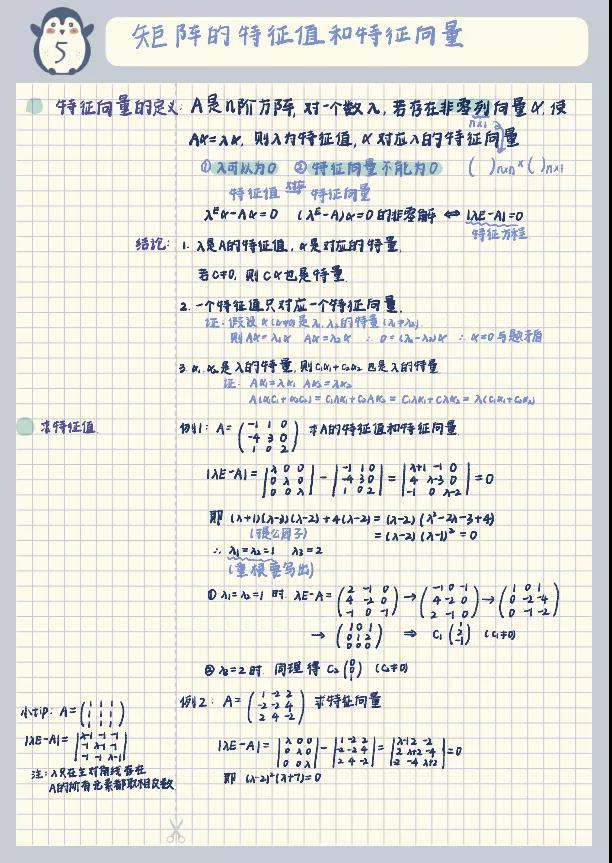 5
矩阵的特征值和特征向量
特征向量的定义: A是n阶方阵, 对一个数λ, 若存在非零列向量α, 使
n×1
Aα=λα, 则λ为特征值, α对应λ的特征向量
①λ可以为0 ②特征向量不能为0 ( )n×n × ( )n×1
特征值 特征向量
λEα-Aα=0 (λE-A)α=0的非零解 ⇔ |λE-A|=0
特征方程
结论: 1. λ是A的特征值, α是对应的特量.
若C≠0, 则Cα也是特量.
2. 一个特征值只对应一个特征向量.
证: 假设α(α≠0)是λ1, λ2的特量(λ1≠λ2).
则Aα=λ1α Aα=λ2α ∴0=(λ1-λ2)α ∴α=0与题矛盾
3. α1, α2是λ的特量, 则C1α1+C2α2也是λ的特量
证: Aα1=λα1 Aα2=λα2
A(α1C1+α2C2)=C1Aα1+C2Aα2=C1λα1+C2λα2=λ(C1α1+C2α2)
求特征值
例1: A= (-1 1 0
-4 3 0
1 0 2) 求A的特征值和特征向量.
|λE-A|= |λ 0 0
0 λ 0
0 0 λ| - |-1 1 0
-4 3 0
1 0 2| = |λ+1 -1 0
4 λ-3 0
-1 0 λ-2| =0
即 (λ+1)(λ-3)(λ-2)+4(λ-2)=(λ-2)(λ²-2λ-3+4)
(提公因子) =(λ-2)(λ-1)²=0
∴ λ1=λ2=1 λ3=2
(重根要写出)
①λ1=λ2=1 时. λE-A= (2 -1 0
4 -2 0
-1 0 -1) → (-1 0 -1
4 -2 0
2 -1 0) → (1 0 1
0 -2 -4
0 -1 -2)
→ (1 0 1
0 1 2
0 0 0) ⇒ C1 (1
2
-1) (C1≠0)
②λ3=2时. 同理得 C2 (0
0
1) (C2≠0)
例2: A= (1 -2 2
-2 -2 4
2 4 -2) 求特征向量
|λE-A|= |λ 0 0
0 λ 0
0 0 λ| - |1 -2 2
-2 -2 4
2 4 -2| = |λ-1 2 -2
2 λ+2 -4
-2 -4 λ+2| =0
即 (λ-2)²(λ+7)=0
小tip: A= (1 1 1
1 1 1
1 1 1)
|λE-A|= |λ-1 -1 -1
-1 λ-1 -1
-1 -1 λ-1|
注: λ只在主对角线存在
A的所有元素都取相反数